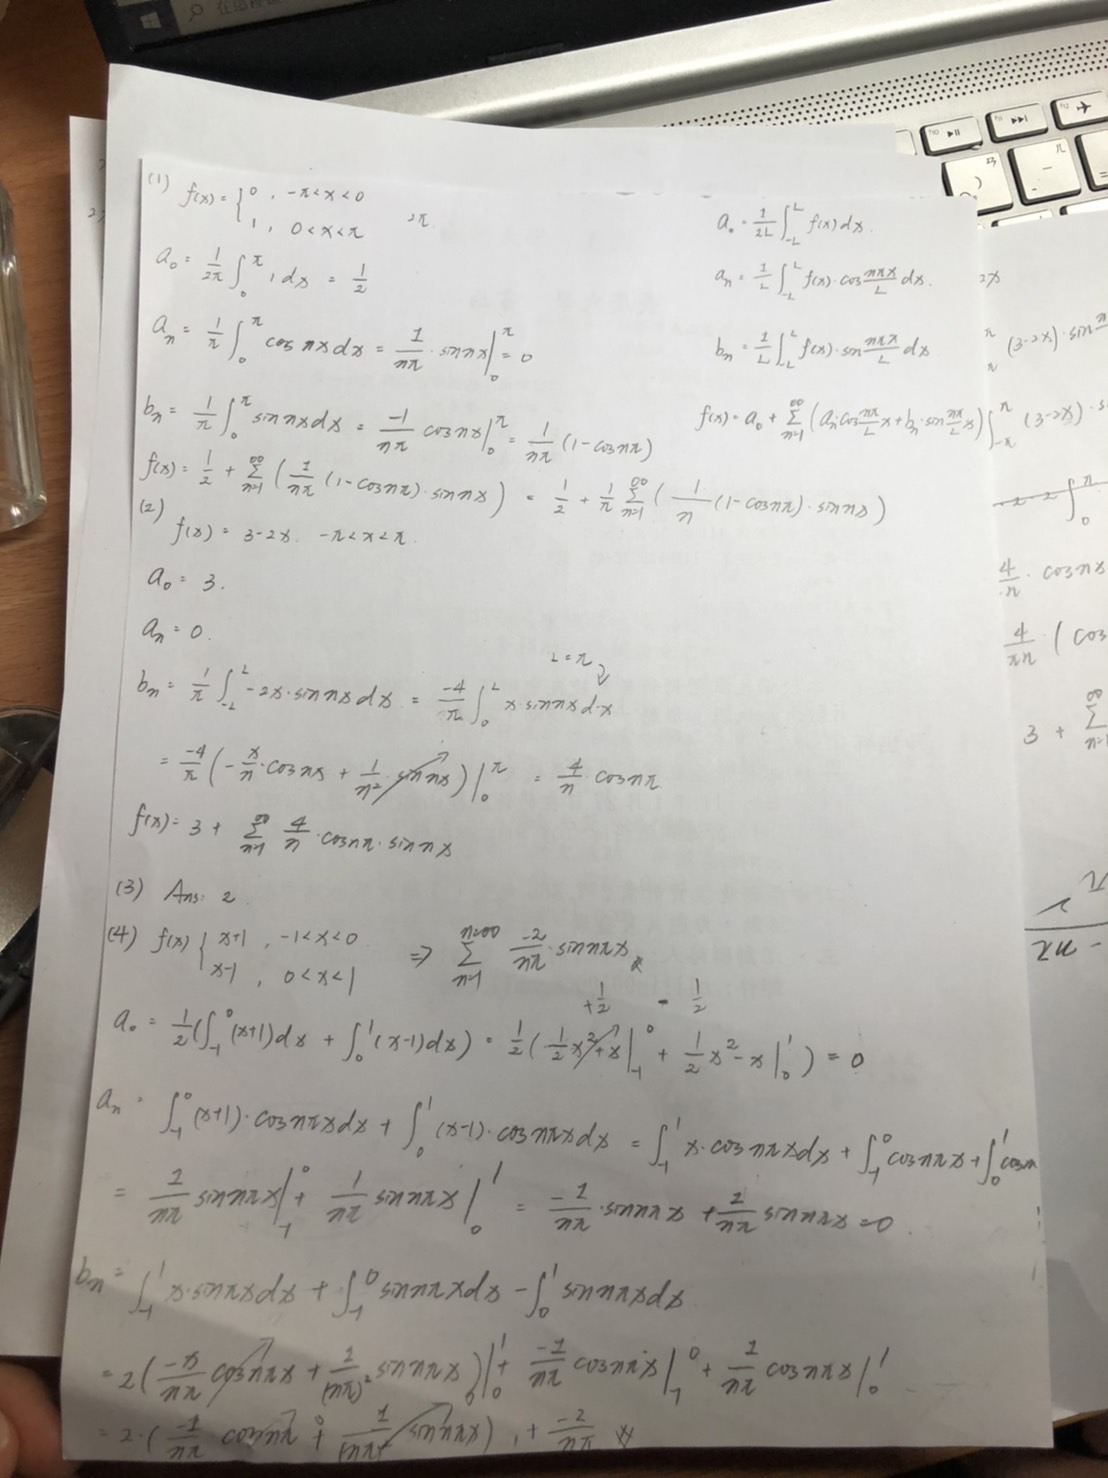 (1) f(x) = { 0 , -π<x<0
1 , 0<x<π
2π
a₀ = 1/2π ∫₀^π 1 dx = 1/2
aₙ = 1/π ∫₀^π cos nx dx = 1/nπ · sin nx |₀^π = 0
bₙ = 1/π ∫₀^π sin nx dx = -1/nπ cos nx |₀^π = 1/nπ (1-cos nπ)
f(x) = 1/2 + Σₙ₌₁^∞ ( 1/nπ (1-cos nπ) · sin nx ) = 1/2 + 1/π Σₙ₌₁^∞ ( 1/n (1-cos nπ) · sin nx )
a₀ = 1/2L ∫₋L^L f(x) dx.
aₙ = 1/L ∫₋L^L f(x) · cos nπx/L dx.
bₙ = 1/L ∫₋L^L f(x) · sin nπx/L dx
f(x) = a₀ + Σₙ₌₁^∞ (aₙ cos nπ/L x + bₙ · sin nπ/L x)
(2)
f(x) = 3-2x. -π<x<π.
a₀ = 3.
aₙ = 0.
L = π
bₙ = 1/π ∫₋L^L -2x · sin nx dx = -4/π ∫₀^L x · sin nx dx
= -4/π ( -x/n · cos nx + 1/n² · sin nx ) |₀^π = 4/n · cos nπ
f(x) = 3 + Σₙ₌₁^∞ 4/n · cos nπ · sin nx
(3) Ans: 2
(4) f(x) { x+1 , -1<x<0 ⇒ Σₙ₌₁^n=∞ -2/nπ · sin nπx
x-1 , 0<x<1
+1/2 - 1/2
a₀ = 1/2 (∫₋₁^0 (x+1)dx + ∫₀^1 (x-1)dx) = 1/2 ( 1/2 x²+x |₋₁^0 + 1/2 x²-x |₀^1 ) = 0
aₙ = ∫₋₁^0 (x+1) · cos nπx dx + ∫₀^1 (x-1) · cos nπx dx = ∫₋₁^1 x · cos nπx dx + ∫₋₁^0 cos nπx + ∫₀^1
= 1/nπ sin nπx |₋₁^0 + 1/nπ sin nπx |₀^1 = -1/nπ · sin nπx + 1/nπ sin nπx = 0
bₙ = ∫₋₁^1 x · sin πx dx + ∫₋₁^0 sin nπx dx - ∫₀^1 sin nπx dx
= 2 ( -x/nπ cos nπx + 1/(nπ)² sin nπx ) |₀^1 + -1/nπ cos nπx |₋₁^0 + 1/nπ cos nπx |₀^1
= 2 · ( -1/nπ cos nπ + 1/(nπ)² sin nπx ) + -2/nπ
2x
(3-2x) · sin
∫₋π^π (3-2x)
∫₀^π
4/n · cos nx
4/πn (cos
3 + Σₙ₌₁^∞